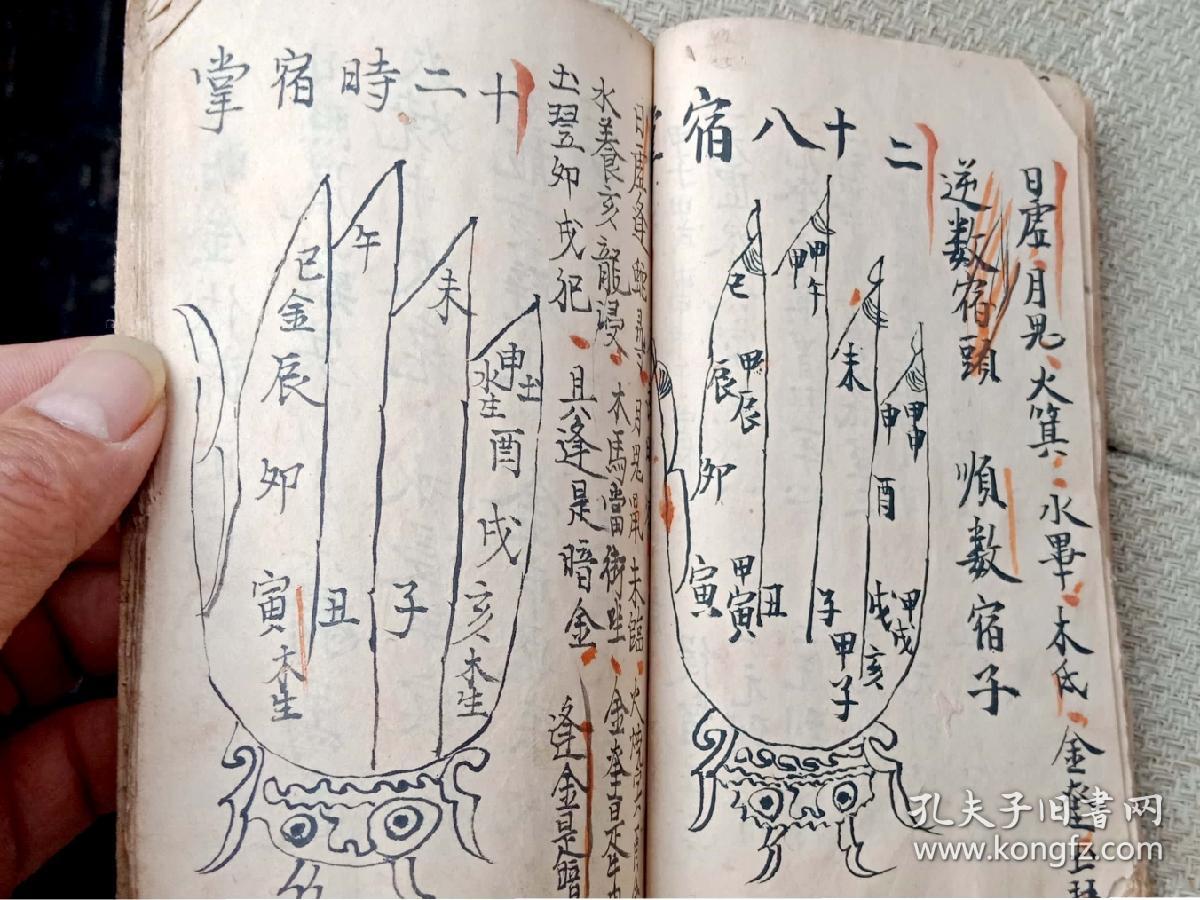 日虛月鬼火箕水畢木氐金奎土翌
逆數宿頭 順數宿子
二十八宿
巳
甲午
甲
辰
甲辰
未
甲申
申
卯
酉
寅
甲寅
丑
子
甲子
戌
甲戌
亥
日虛逢
月鬼鼠未臨
水養亥龍浸木馬當街坐金奎
土翌卯戌犯具逢是暗金
逢金是暗
十二時宿掌
巳
金
午
未
申土
水生
辰
酉
卯
戌
寅木生
丑
子
亥木生
孔夫子旧書网
www.kongfz.com